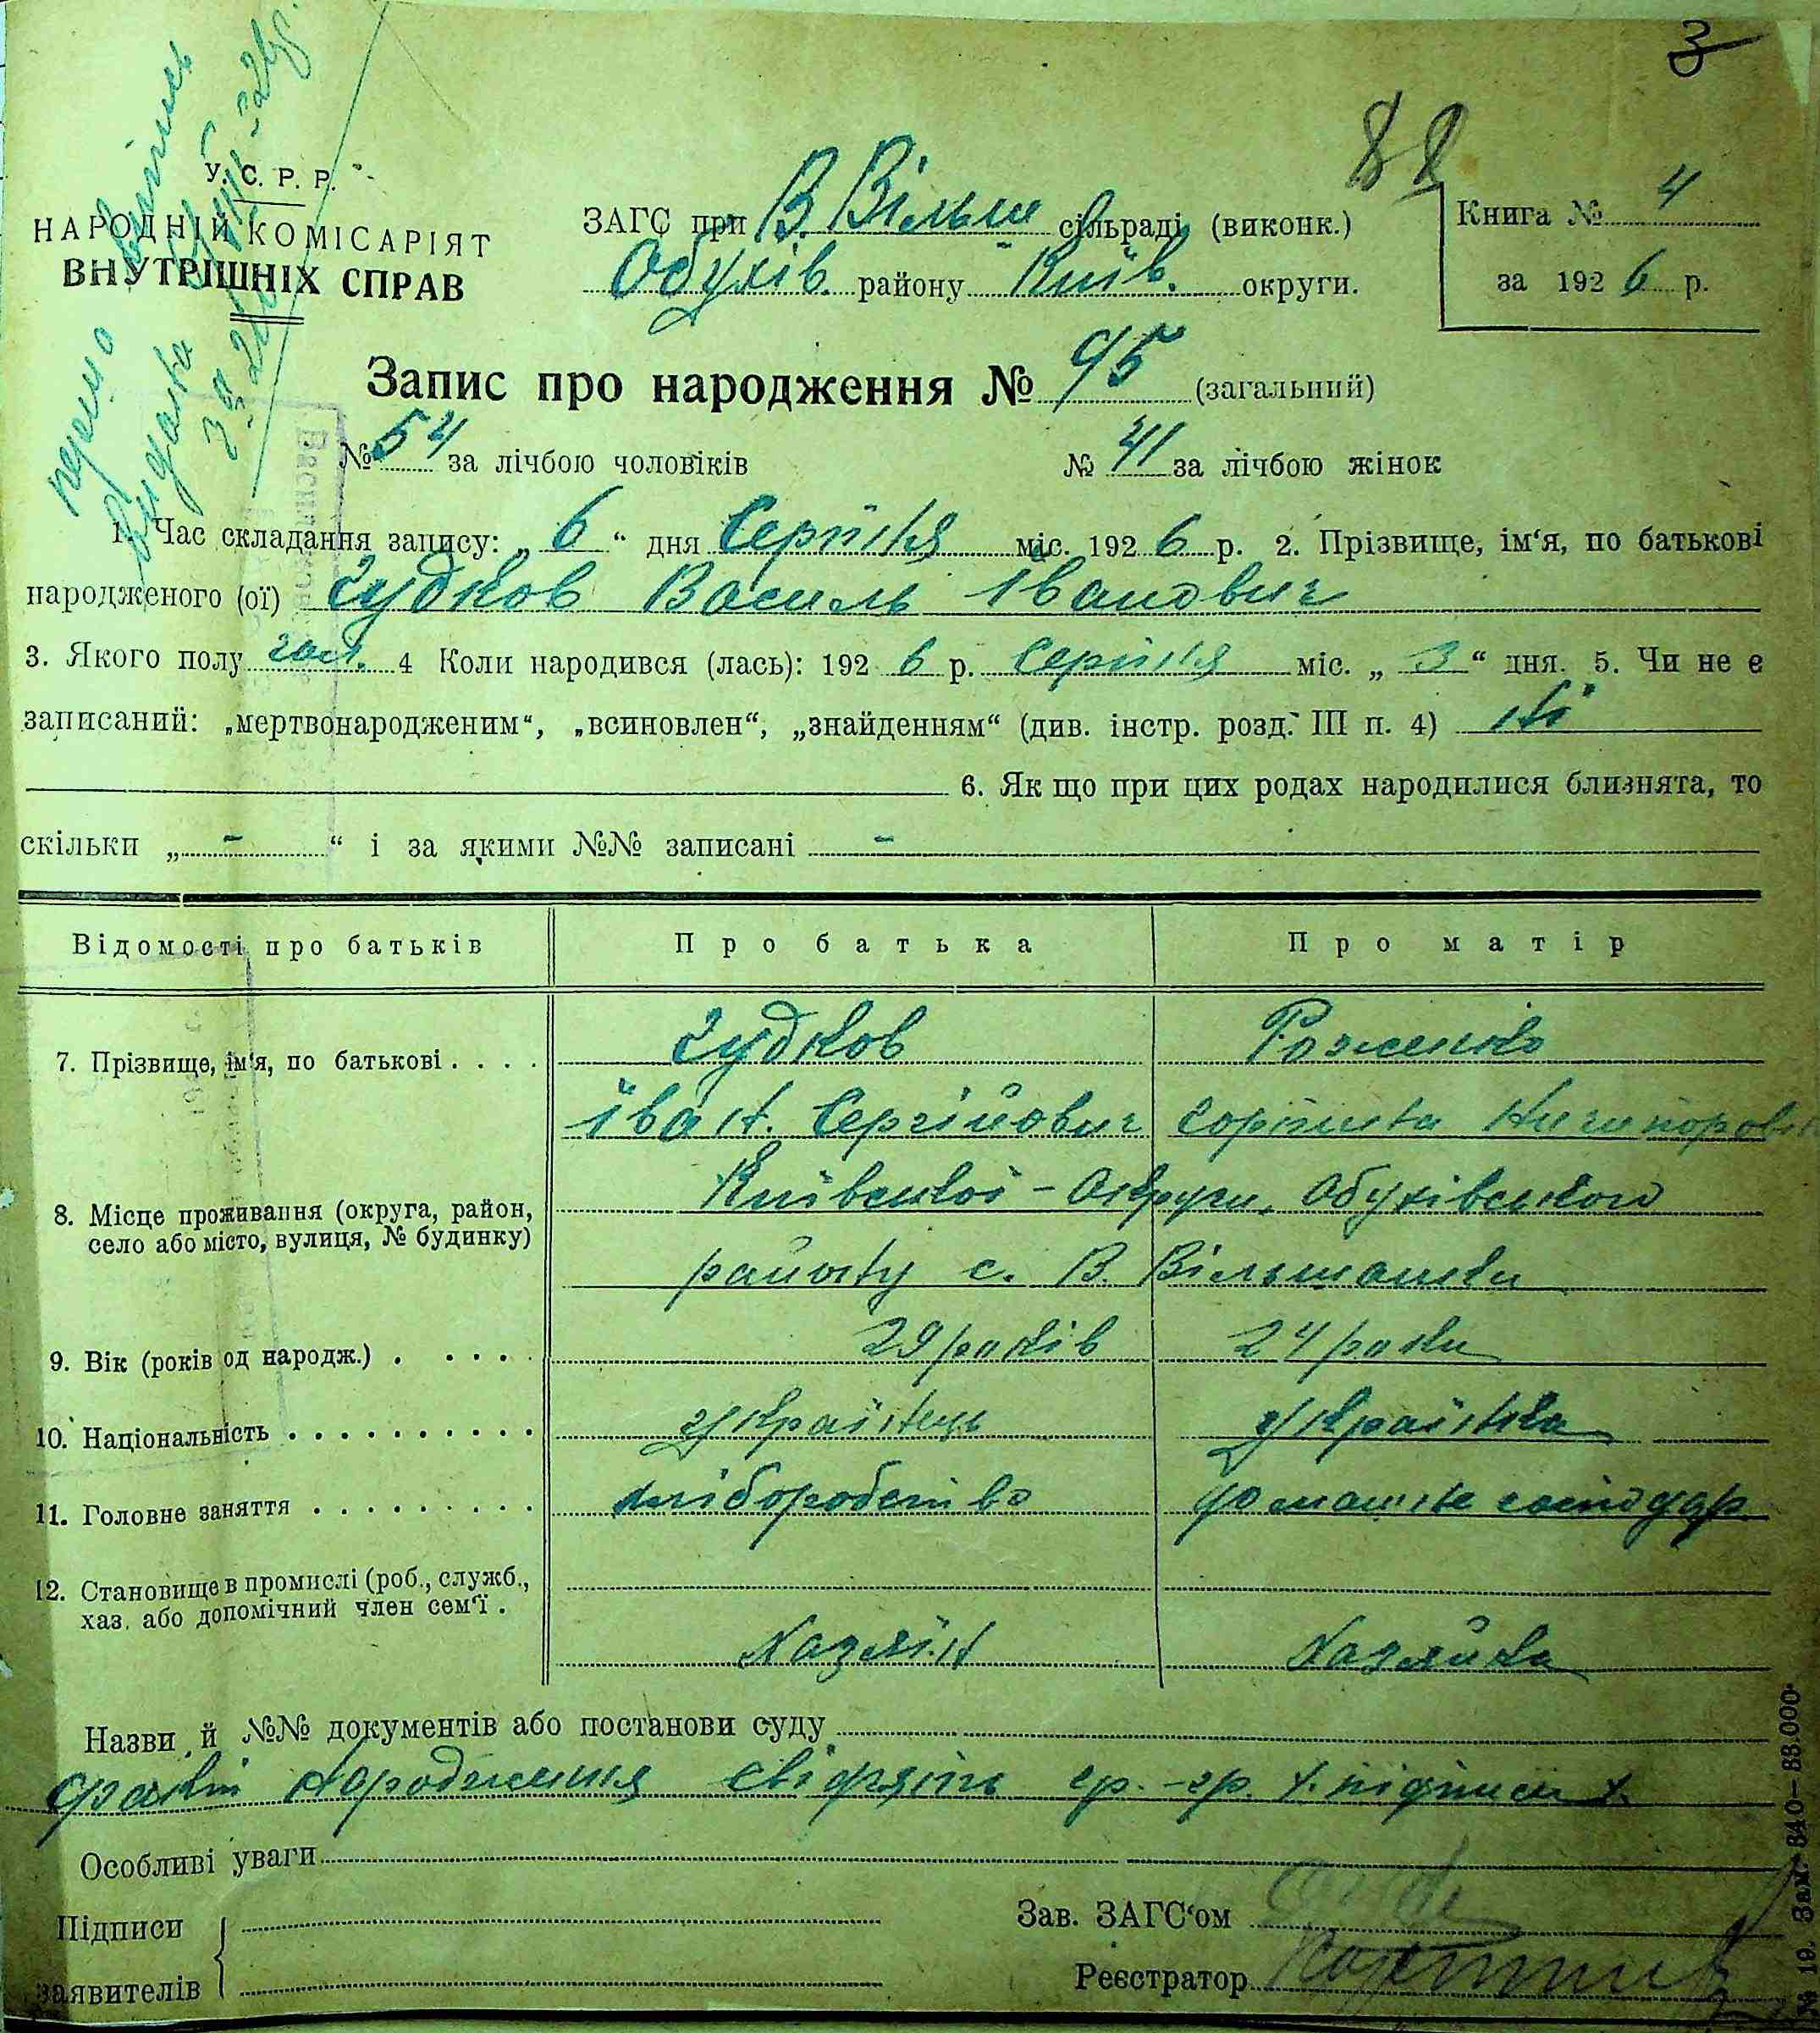 3
88
У. С. Р. Р.
НАРОДНІЙ КОМІСАРІЯТ
ВНУТРІШНІХ СПРАВ
ЗАГС при В. Вільш сільраді (виконк.)
Обухів. району Київ. округи.
Книга № 4
за 1926 р.
Запис про народження № 95 (загальний)
№ 54 за лічбою чоловіків № 41 за лічбою жінок
1. Час складання запису: „ 6 “ дня Серпня міс. 1926 р. 2. Прізвище, ім‘я, по батькові
народженого (ої) Чудков Василь Іванович
3. Якого полу чол. 4 Коли народився (лась): 1926 р. Серпня міс. „ 3 “ дня. 5. Чи не є
записаний: „мертвонародженим“, „всиновлен“, „знайденням“ (див. інстр. розд. III п. 4) ні
6. Як що при цих родах народилися близнята, то
скільки „ - “ і за якими №№ записані -
Відомості про батьків Про батька Про матір
7. Прізвище, ім‘я, по батькові . . . . Чудков Роженко
Іван. Сергійович Горпина Ничипоров
8. Місце проживання (округа, район,
село або місто, вулиця, № будинку)
Київської - Округи, Обухівського
району с. В. Вільшанки
9. Вік (років од народж.) . . . . . 29 років 24 роки
10. Національність . . . . . . . . . . українець українка
11. Головне заняття . . . . . . . . . хліборобство домашне господар
12. Становище в промислі (роб., служб.,
хаз. або допомічний член сем‘ї .
Хазяїн Хазяйка
Назви й №№ документів або постанови суду
факт народження свідчать гр.-гр.
Особливі уваги
Підписи
заявителів
Зав. ЗАГС‘ом
Реєстратор
№ 19. Зам. 840—83.000.